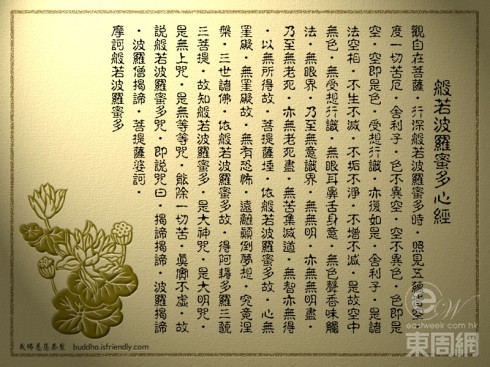 般若波羅蜜多心經
觀自在菩薩‧行深般若波羅蜜多時‧照見五蘊皆空‧
度一切苦厄‧舍利子‧色不異空‧空不異色‧色即是
空‧空即是色‧受想行識‧亦復如是‧舍利子‧是諸
法空相‧不生不滅‧不垢不淨‧不增不減‧是故空中
無色‧無受想行識‧無眼耳鼻舌身意‧無色聲香味觸
法‧無眼界‧乃至無意識界‧無無明‧亦無無明盡‧
乃至無老死‧亦無老死盡‧無苦集滅道‧無智亦無得
‧以無所得故‧菩提薩埵‧依般若波羅蜜多故‧心無
罣礙‧無罣礙故‧無有恐怖‧遠離顛倒夢想‧究竟涅
槃‧三世諸佛‧依般若波羅蜜多故‧得阿耨多羅三藐
三菩提‧故知般若波羅蜜多‧是大神咒‧是大明咒‧
是無上咒‧是無等等咒‧能除一切苦‧真實不虛‧故
說般若波羅蜜多咒‧即說咒曰‧揭諦揭諦‧波羅揭諦
‧波羅僧揭諦‧菩提薩婆訶‧
摩訶般若波羅蜜多
buddha.isfriendly.com
eastweek.com.hk
東周網